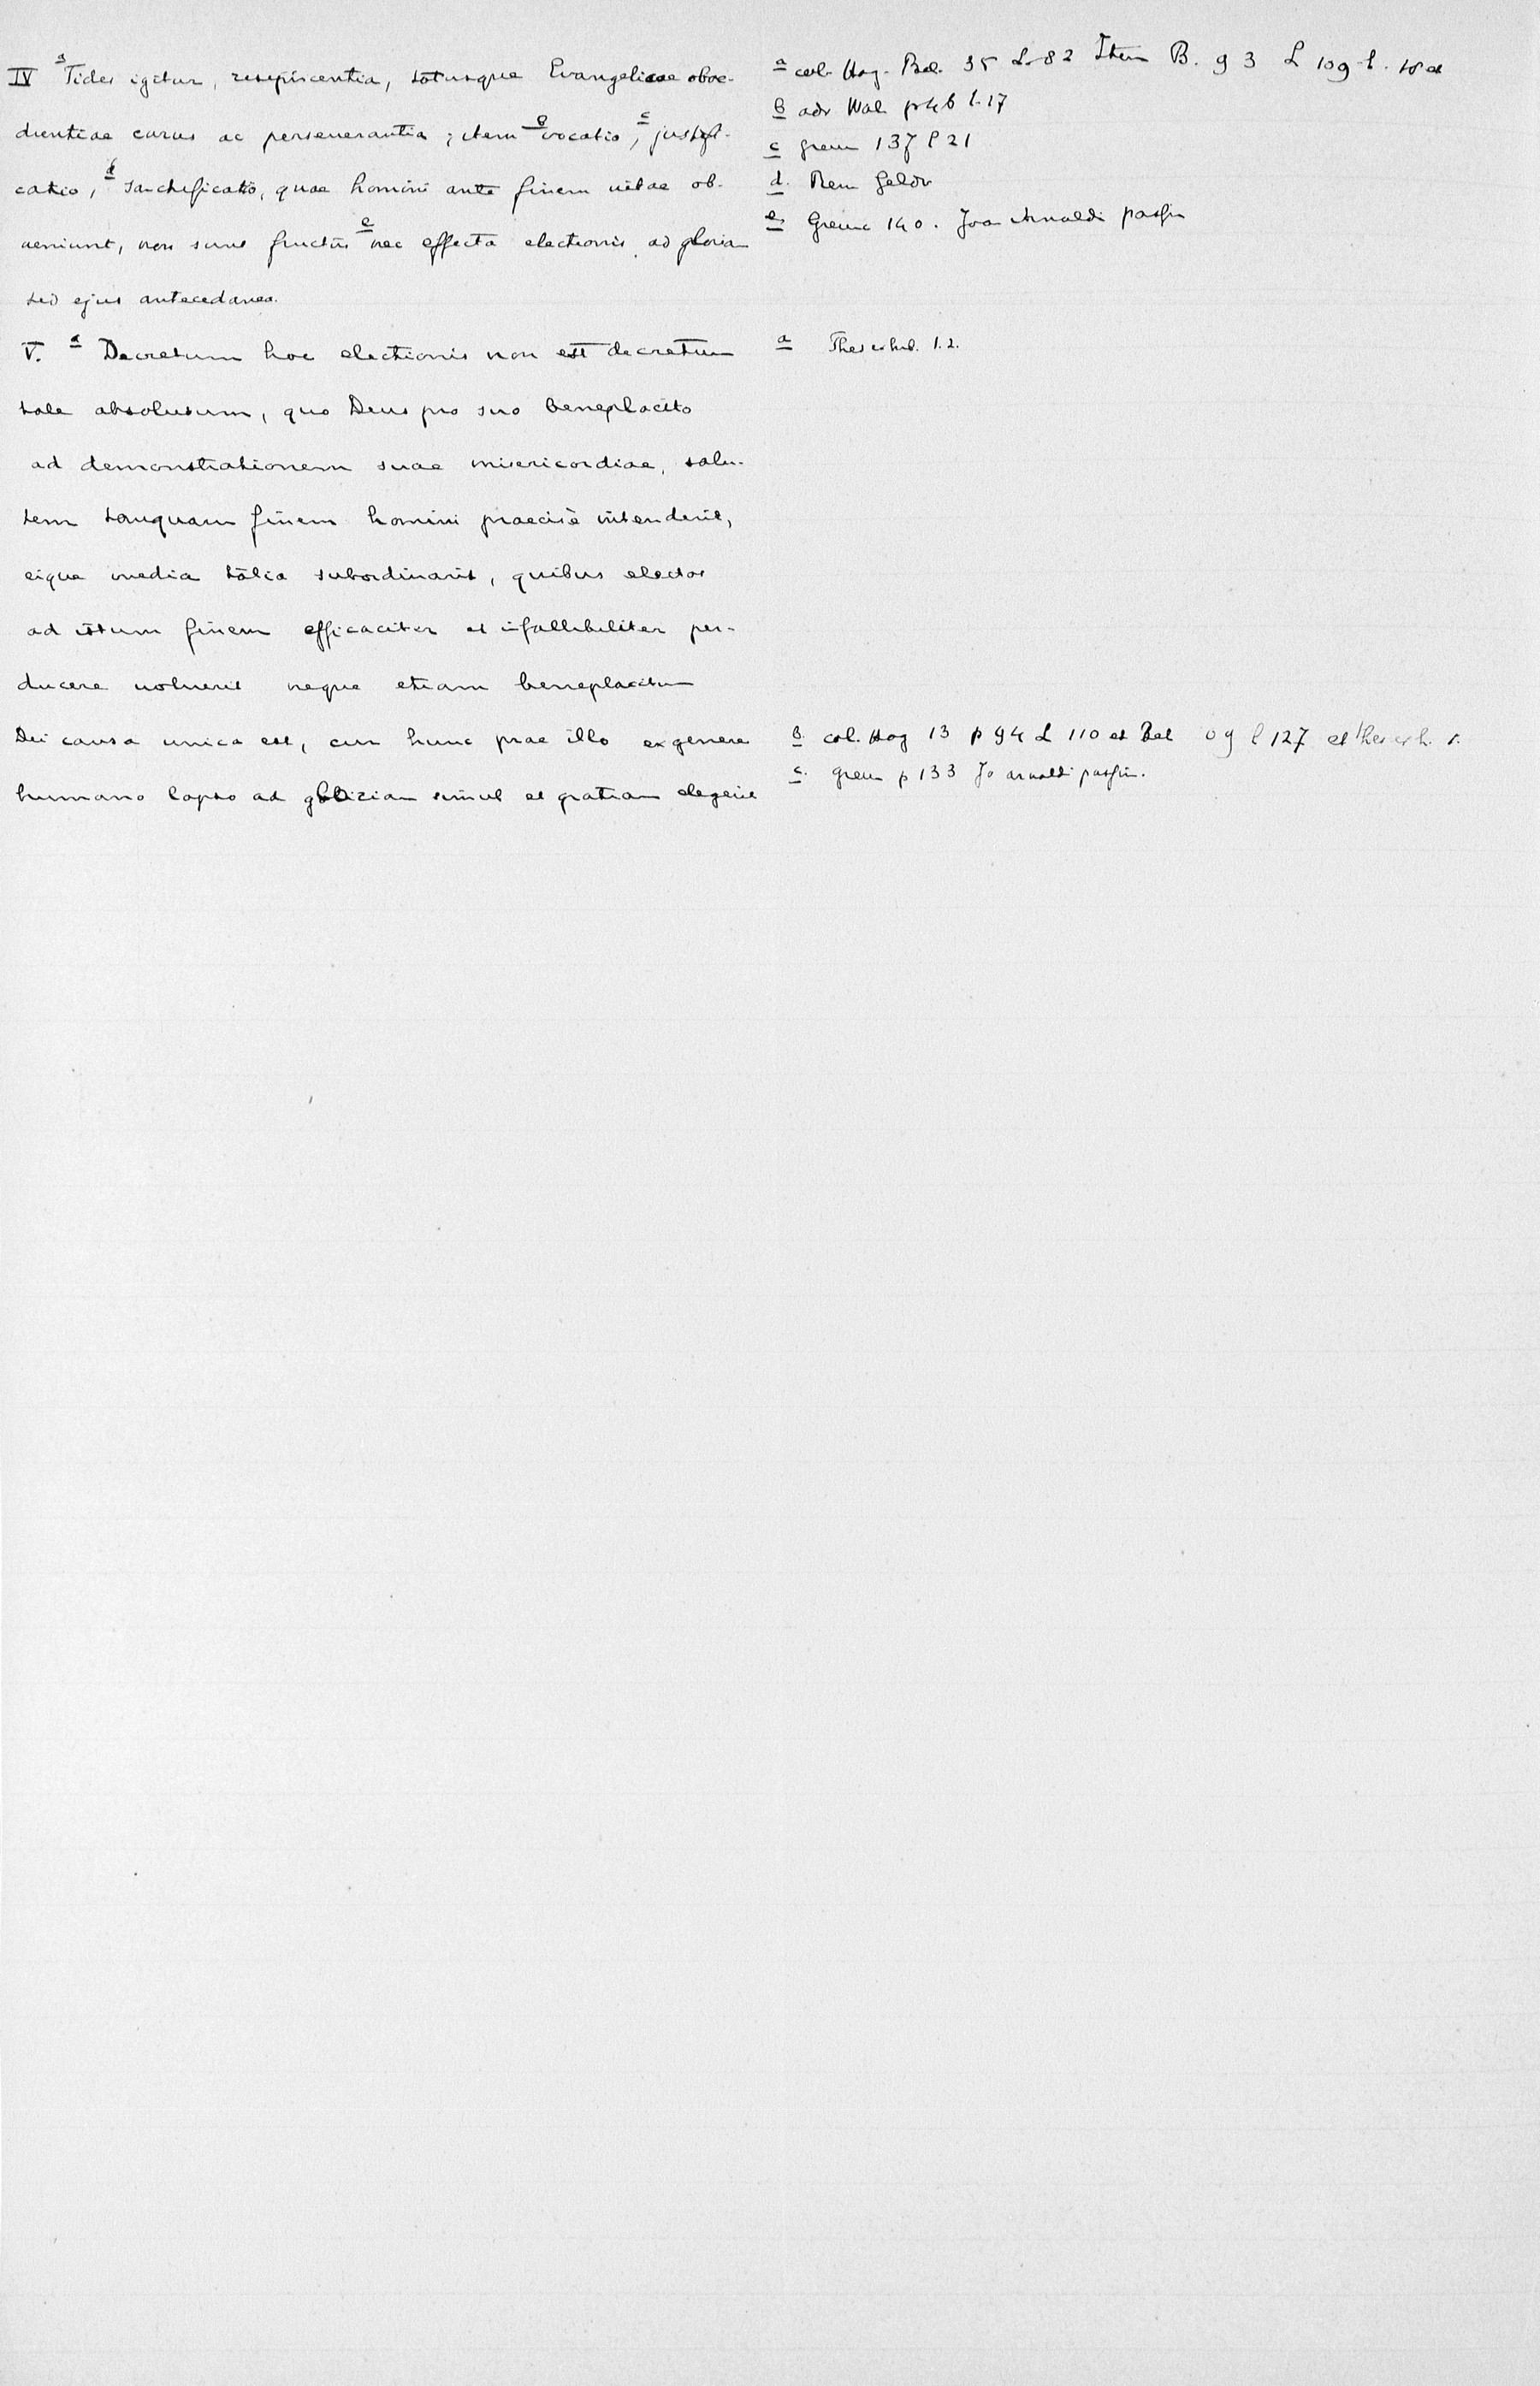 IV a Fides igitur, resipiscentia, totusque Evangelicae oboe-
dientiae cursus ac perseverantia; item b vocatio, c justifi-
catio, d sanctificatio, quae homini ante finem vitae ob-
veniunt, non sunt fructus e nec effecta electionis ad gloriam
sed ejus antecedanea.
V. a Decretum hoc electionis non est decretum
tale absolutum, quo Deus pro suo beneplacito
ad demonstrationem suae misericordiae, salu-
tem tanquam finem homini praecisè intenderit,
eique media talia subordinarit, quibus electos
ad istum finem efficaciter et infallibiliter per-
ducere voluerit neque etiam beneplacitum
Dei causa unica est, cur hunc prae illo ex genere
humano lapso ad gloriam simul et gratiam elegerit
a col. Hag. Bel. 35 L. 82 Item B. 93 L 109 l.
b adv Wal. p 46 l. 17
c Greu 137 l 21
d. Rem Geldr
e. Greuc 140. Joa Arnoldi passim
a Thes exhib. 1.2.
b. col. Hag 13 p 94 L 110 et Bel 09 l 127 et thes exh. 1.
c. Greu p 133 Jo arnoldi passim.